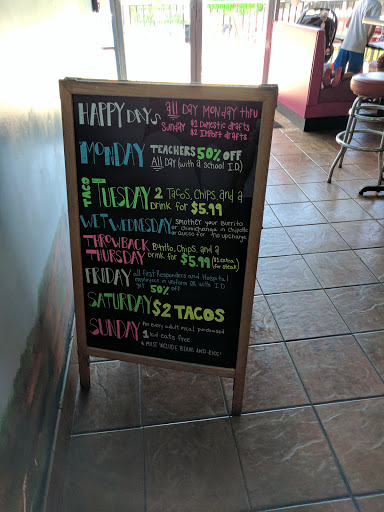 HAPPY DAYS: all DAY MONDAY thru
Sunday $1 Domestic drafts
$2 Import drafts
MONDAY TEACHERS 50% OFF
All DAY (with a school I.D)
TACO TUESDAY 2 TACOS, CHIPS, and a
Drink for $5.99
WET WEDNESDAY Smother your Burrito
or chimichanga in chipotle
or Queso for no upcharge
THROWBACK THURSDAY Burrito, Chips, and a
Drink for $5.99 ($1 extra
for steak)
FRIDAY all first Responders and Hospital
employees in uniform OR with I.D
get 50% OFF
SATURDAY $2 TACOS
SUNDAY for every adult meal purchased
1 kid eats free
& MUST INCLUDE BEANS AND RICE!